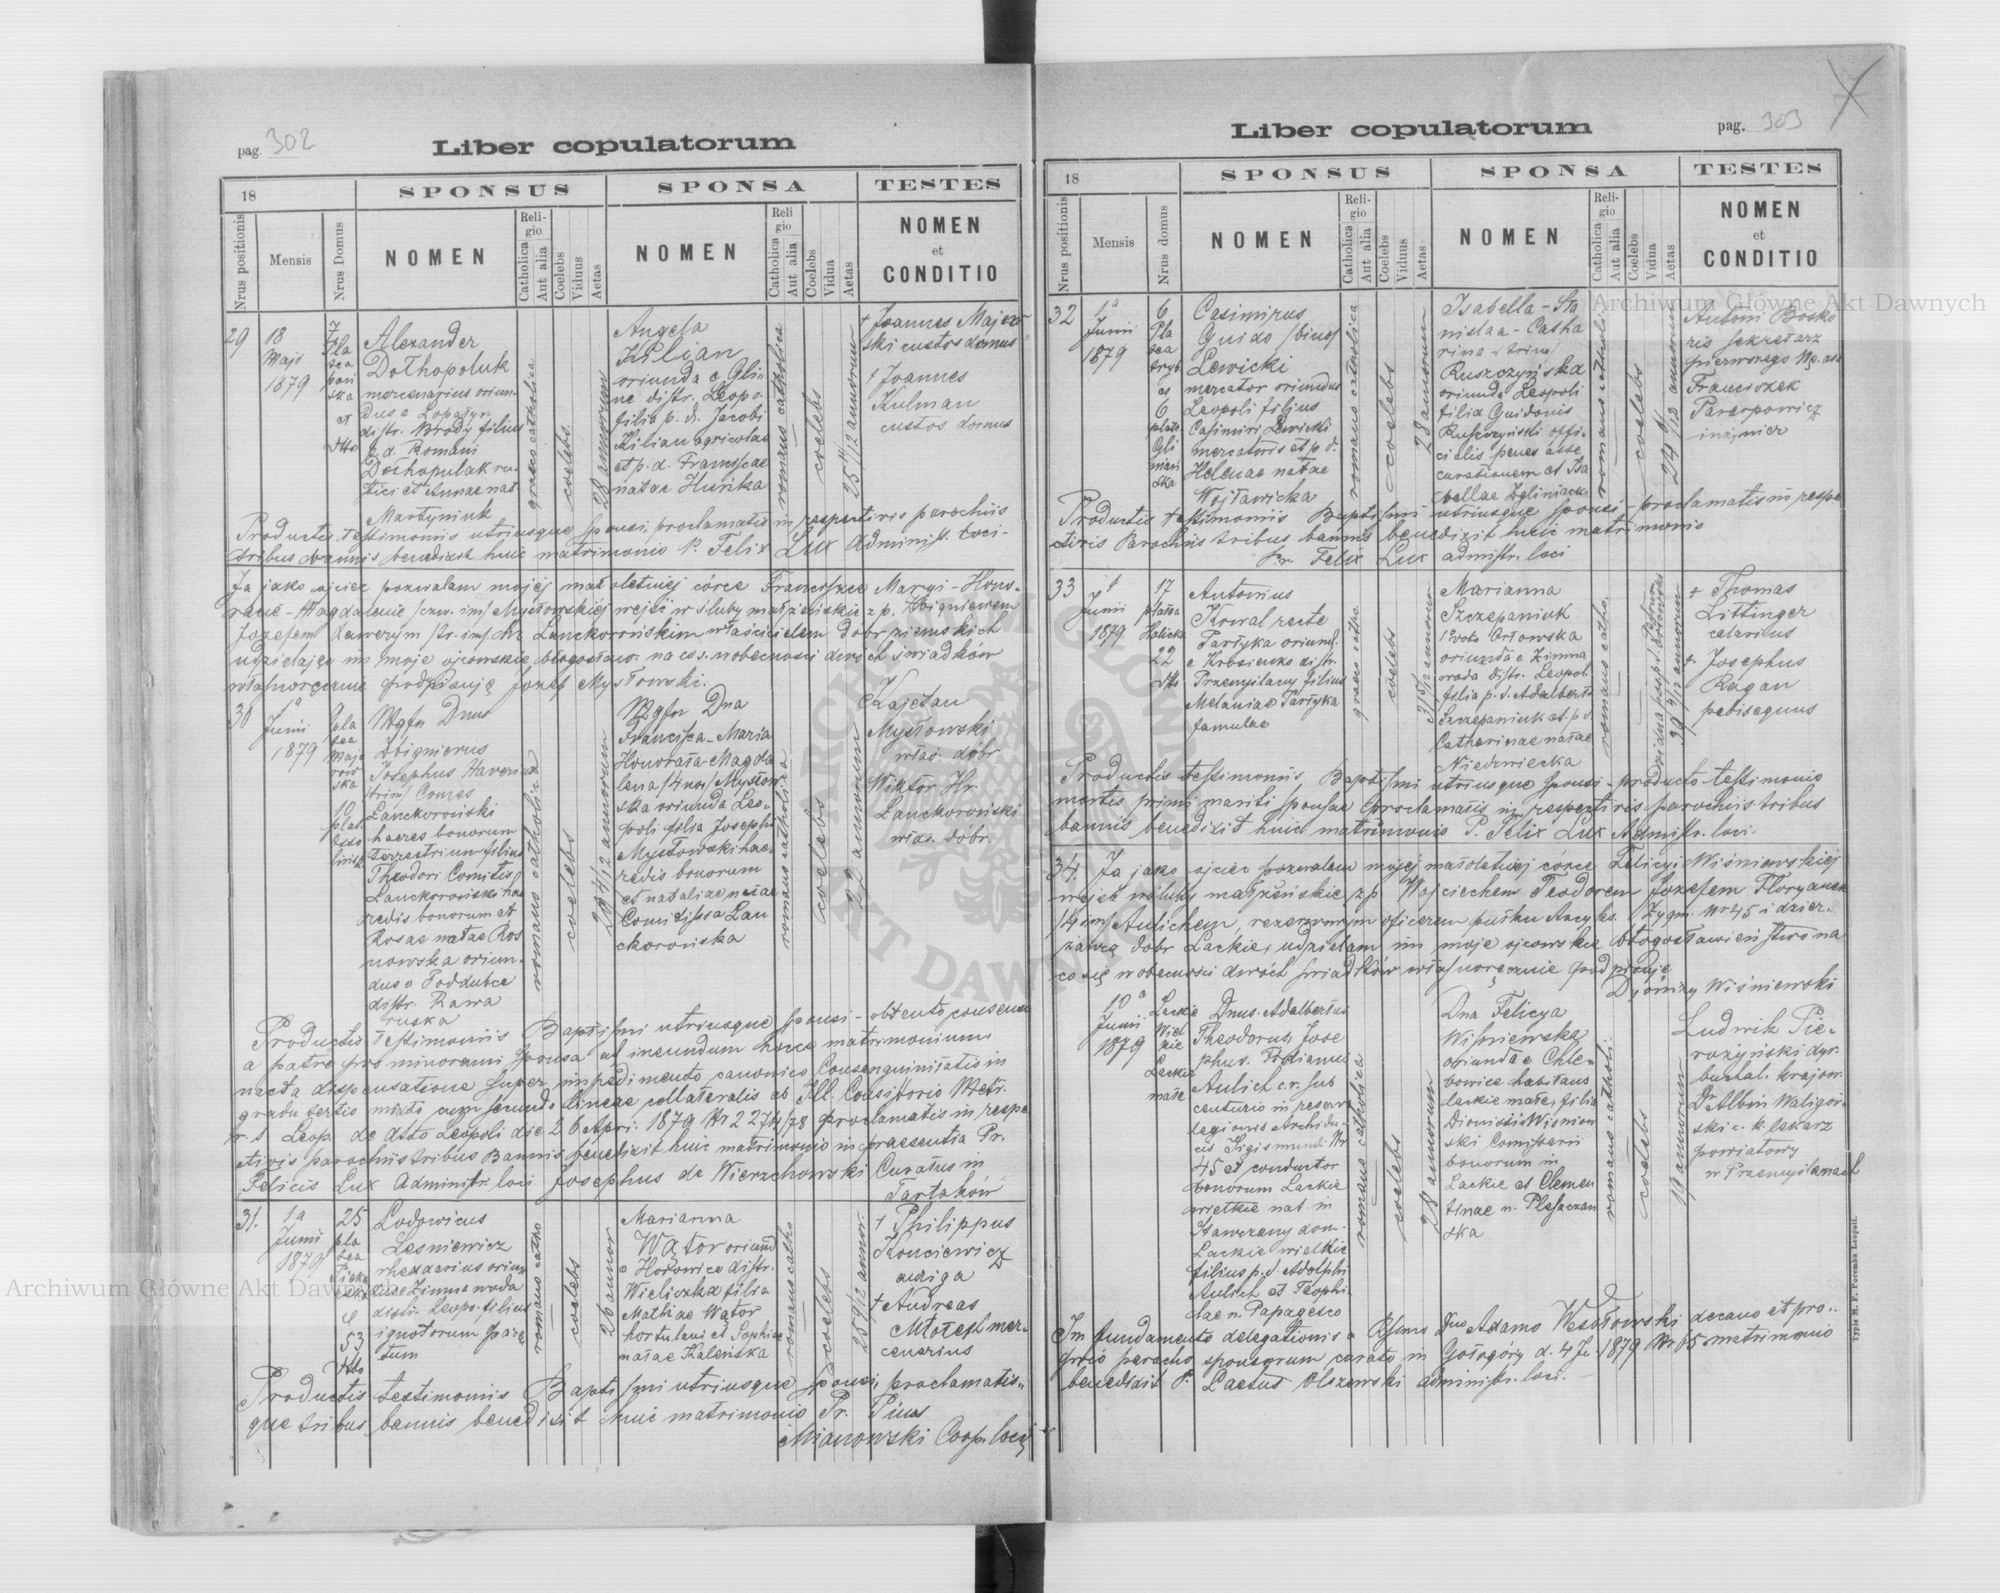 pag. 302
Liber copulatorum
18
SPONSUS
SPONSA
TESTES
Nrus positionis
Mensis
Nrus Domus
NOMEN
Religio
Catholica
Aut alia
Coelebs
Viduus
Aetas
NOMEN
Religio
Catholica
Aut alia
Coelebs
Vidua
Aetas
NOMEN
et
CONDITIO
29
18
Maji
1879
Alexander
Dołhopoluk
mercenarius oriun
dus e Łopatyn
distr. Brody filius
p. d. Romani
Dołhopulak rus
tici et Annae nat
Martyniuk
graeco catholica
coelebs
28 annorum
Angela
Kilian
oriunda e Gli
ne distr. Leopo.
filia p. d. Jacobi
Kilian agricolae
et p. d. Franciscae
natae Huńka
romano catholica
coelebs
25 11/12 annorum
+ Joannes Majew
ski custos domus
+ Joannes
Kulman
custos domus
Productis testimoniis utriusque sponsi, proclamatis in respectivis parochiis
tribus bannis benedixit huic matrimonio P. Felix Lux Administ. loci.
Ja jako ojciec pozwalam mojej małoletniej córce Franciszce Maryi-Hono-
racie-Magdalenie /czw. im/ Mysłowskiej wejść w śluby małżeńskie z p. Zbigniewem
Józefem Xawerym /tr. im/ hr Lanckorońskim właścicielem dobr ziemskich
udzielając im moje ojcowskie błogosław. na co s. w obecności dwóch świadków
własnoręcznie podpisuję Józef Mysłowski.
30
1a
Junii
1879
Mgfus Dnus
Zbignierus
Josephus Haverius
/trim/ Comes
Lanckoroński
haeres bonorum
terrestrium filius
Theodori Comitis
Lanckoroński hae
redis bonorum et
Rosae natae Ros
nowska oriun-
dus e Poddubce
distr. Rawa
ruska
romano catholica
coelebs
28 4/12 annorum
Mgfa Dna
Francisca-Maria
Honorata-Magda
lena /4 nom/ Mysłow
ska oriunda Leo-
poli filia Josephi
Mysłowski hae-
redis bonorum
et Nataliae natae
Comitissa Lan
ckorońska
romano catholica
coelebs
22 annorum
Kajetan
Mysłowski
właś. dóbr
Wiktor Hr.
Lanckoroński
właś. dóbr.
Productis testimoniis Baptismi utriusque sponsi - obtento consensu
a patre pro minorami sponsa ad ineundum hocce matrimonium
nacta dispensatione super impedimento canonico Consanguinitatis in
gradu tertio mixto cum secundo lineae collateralis ab Ill. Consistorio Metr.
r. l. Leop. de dtto Leopoli die 26 Apri. 1879 Nr 2274/78 proclamatis in respe
ctivis parochiis tribus Bannis, benedixit huic matrimonio in praesentia Pr.
Felicis Lux Administr. loci Josephus de Wierzchowski Curatus in
Tartaków
31.
1a
Junii
1879
25
53
dtto
Lodovicus
Lesniewicz
rhedarius oriun
dus e Zimna woda
distr. Leopo. filius
ignotorum paren
tum
romano catho
coelebs
26 annor
Marianna
Wątor oriund
e Hołowice distr.
Wieliczka filia
Mathiae Wątor
hortulani et Sophiae
natae Kaleńska
romano catho
coelebs
25 9/12 annor.
+ Philippus
Konciewicz
auriga
+ Andreas
Młotesz mer-
cenarius
Productis testimoniis Baptismi utriusque sponsi, proclamatis-
que tribus bannis benedixit huic matrimonio Pr. Pius
Mianowski Coop. loci
pag. 303
Liber copulatorum
18
SPONSUS
SPONSA
TESTES
Nrus positionis
Mensis
Nrus domus
NOMEN
Religio
Catholica
Aut alia
Coelebs
Viduus
Aetas
NOMEN
Religio
Catholica
Aut alia
Coelebs
Vidua
Aetas
NOMEN
et
CONDITIO
32
1a
Junii
1879
Casimirus
Guido /bius/
Lewicki
mercator oriundus
Leopoli filius
Casimiri Lewicki
mercatoris et p. d.
Helenae natae
Wojtawicka
romano catholica
coelebs
28 annorum
Isabella-Sta
nislaa-Catha
rina /trino/
Ruszczyńska
oriunda Leopoli
filia Guidonis
Ruszczyński offi-
cialis penes asse
curationem et Isa
bellae Zgliniacka
romano catholi
coelebs
24 9/12 annorum
Antoni Bosko
ris sekretarz
pierwszego
Franciszek
Paraspowicz
inżynier
Productis testimoniis Baptismi utriusque sponsi - proclamatis in respe
ctivis Parochiis tribus bannis benedixit huic matrimonio
Pr. Felix Lux admistr. loci
33
Junii
1879
17
platea
Halicka
22
dtto
Antonius
Kowal recte
Partyka oriund.
e Krosienko distr.
Przemyślany filius
Melaniae Partyka
famulae
graeco catho.
coelebs
Marianna
Szczepaniuk
1 voto Orłowska
oriunda e Zimna
woda distr. Leopol
filia p. d. Adalberti
Szczepaniuk et p. d.
Catherinae natae
Niedzwiecka
romano catho.
39 7/12 annorum
+ Thomas
Littinger
celarius
+ Josephus
Ragan
pedisequus
Productis testimoniis Baptismi utriusque sponsi - producto testimonio
mortis primi mariti sponsae proclamatis in respectivis parochiis tribus
bannis benedixit huic matrimonio P. Felix Lux Admistr. loci.
34. Ja jako ojciec pozwalam mojej małoletniej córce Felicyi Wiśniewskiej
wejść w śluby małżeńskie z p Wojciechem Teodorem Józefem Floryanem
/4 im/ Aulichem, rezerwowym oficerem pułku Arcyks. Zygm. Nr 45 i dzier-
żawcą dobr Łackie, udzielam im moje ojcowskie błogosławieństwo na
co się w obecności dwóch świadków własnoręcznie podpisuję
Dyonizy Wiśniewski
10a
Junii
1879
Łackie
Wiel
kie
Łackie
małe
Dnus Adalbertus
Theodorus Jose
phus Florianus
Aulich c. r. sub
centurio in reserva
legionis Archidu-
cis Sigismundi Nr
45 et conductor
bonorum Lackie
wielkie nat. in
Hawrzeny dom.
Lackie wielkie
filius p. d. Adolphi
Aulich et Theophi
lae n. Papagesco
romano catholica
coelebs
28 annorum
Dna Felicya
Wiśniewska
oriunda e Chle-
bowice habitans
Lackie małe, filia
Dionisii Wiśniew
ski Comissarii
bonorum in
Lackie et Clemen
tinae n. Pleszczań
ska
romano catholi.
coelebs
19 annorum
Ludwik Pie-
rożyński dyr.
buchal. krajow.
Dr Albin Waligór-
ski c. k. lekarz
powiatowy
w Przemyślanach
In fundamento delegationis a Rssmo Dno Adamo Wesołowski decano et pro-
prio parocho sponsorum curato in Gołogóry d. 4 Ju. 1879 Nr 15 matrimonio
benedixit P. Laetus Olszewski administr. loci.
Typis H. F. Poremba Leopoli.
Archiwum Główne Akt Dawnych
Archiwum Główne Akt Dawnych
ARCHIWUM GŁÓWNE AKT DAWNYCH